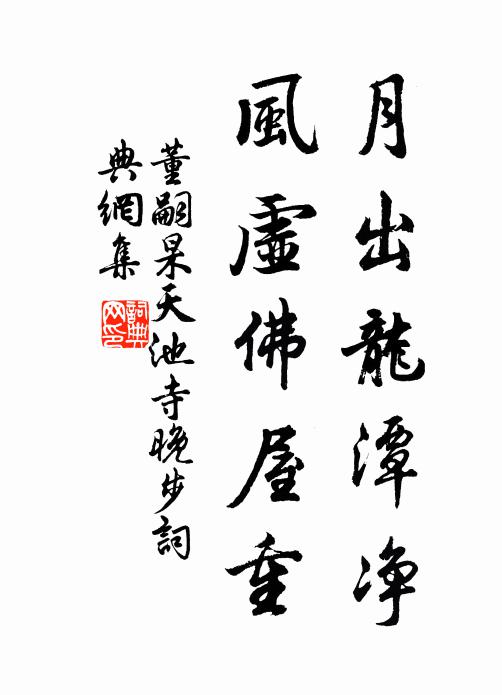 月出龍潭净
風虛佛屋重
董嗣杲天池寺晚步詞
典網集
詞典
网印